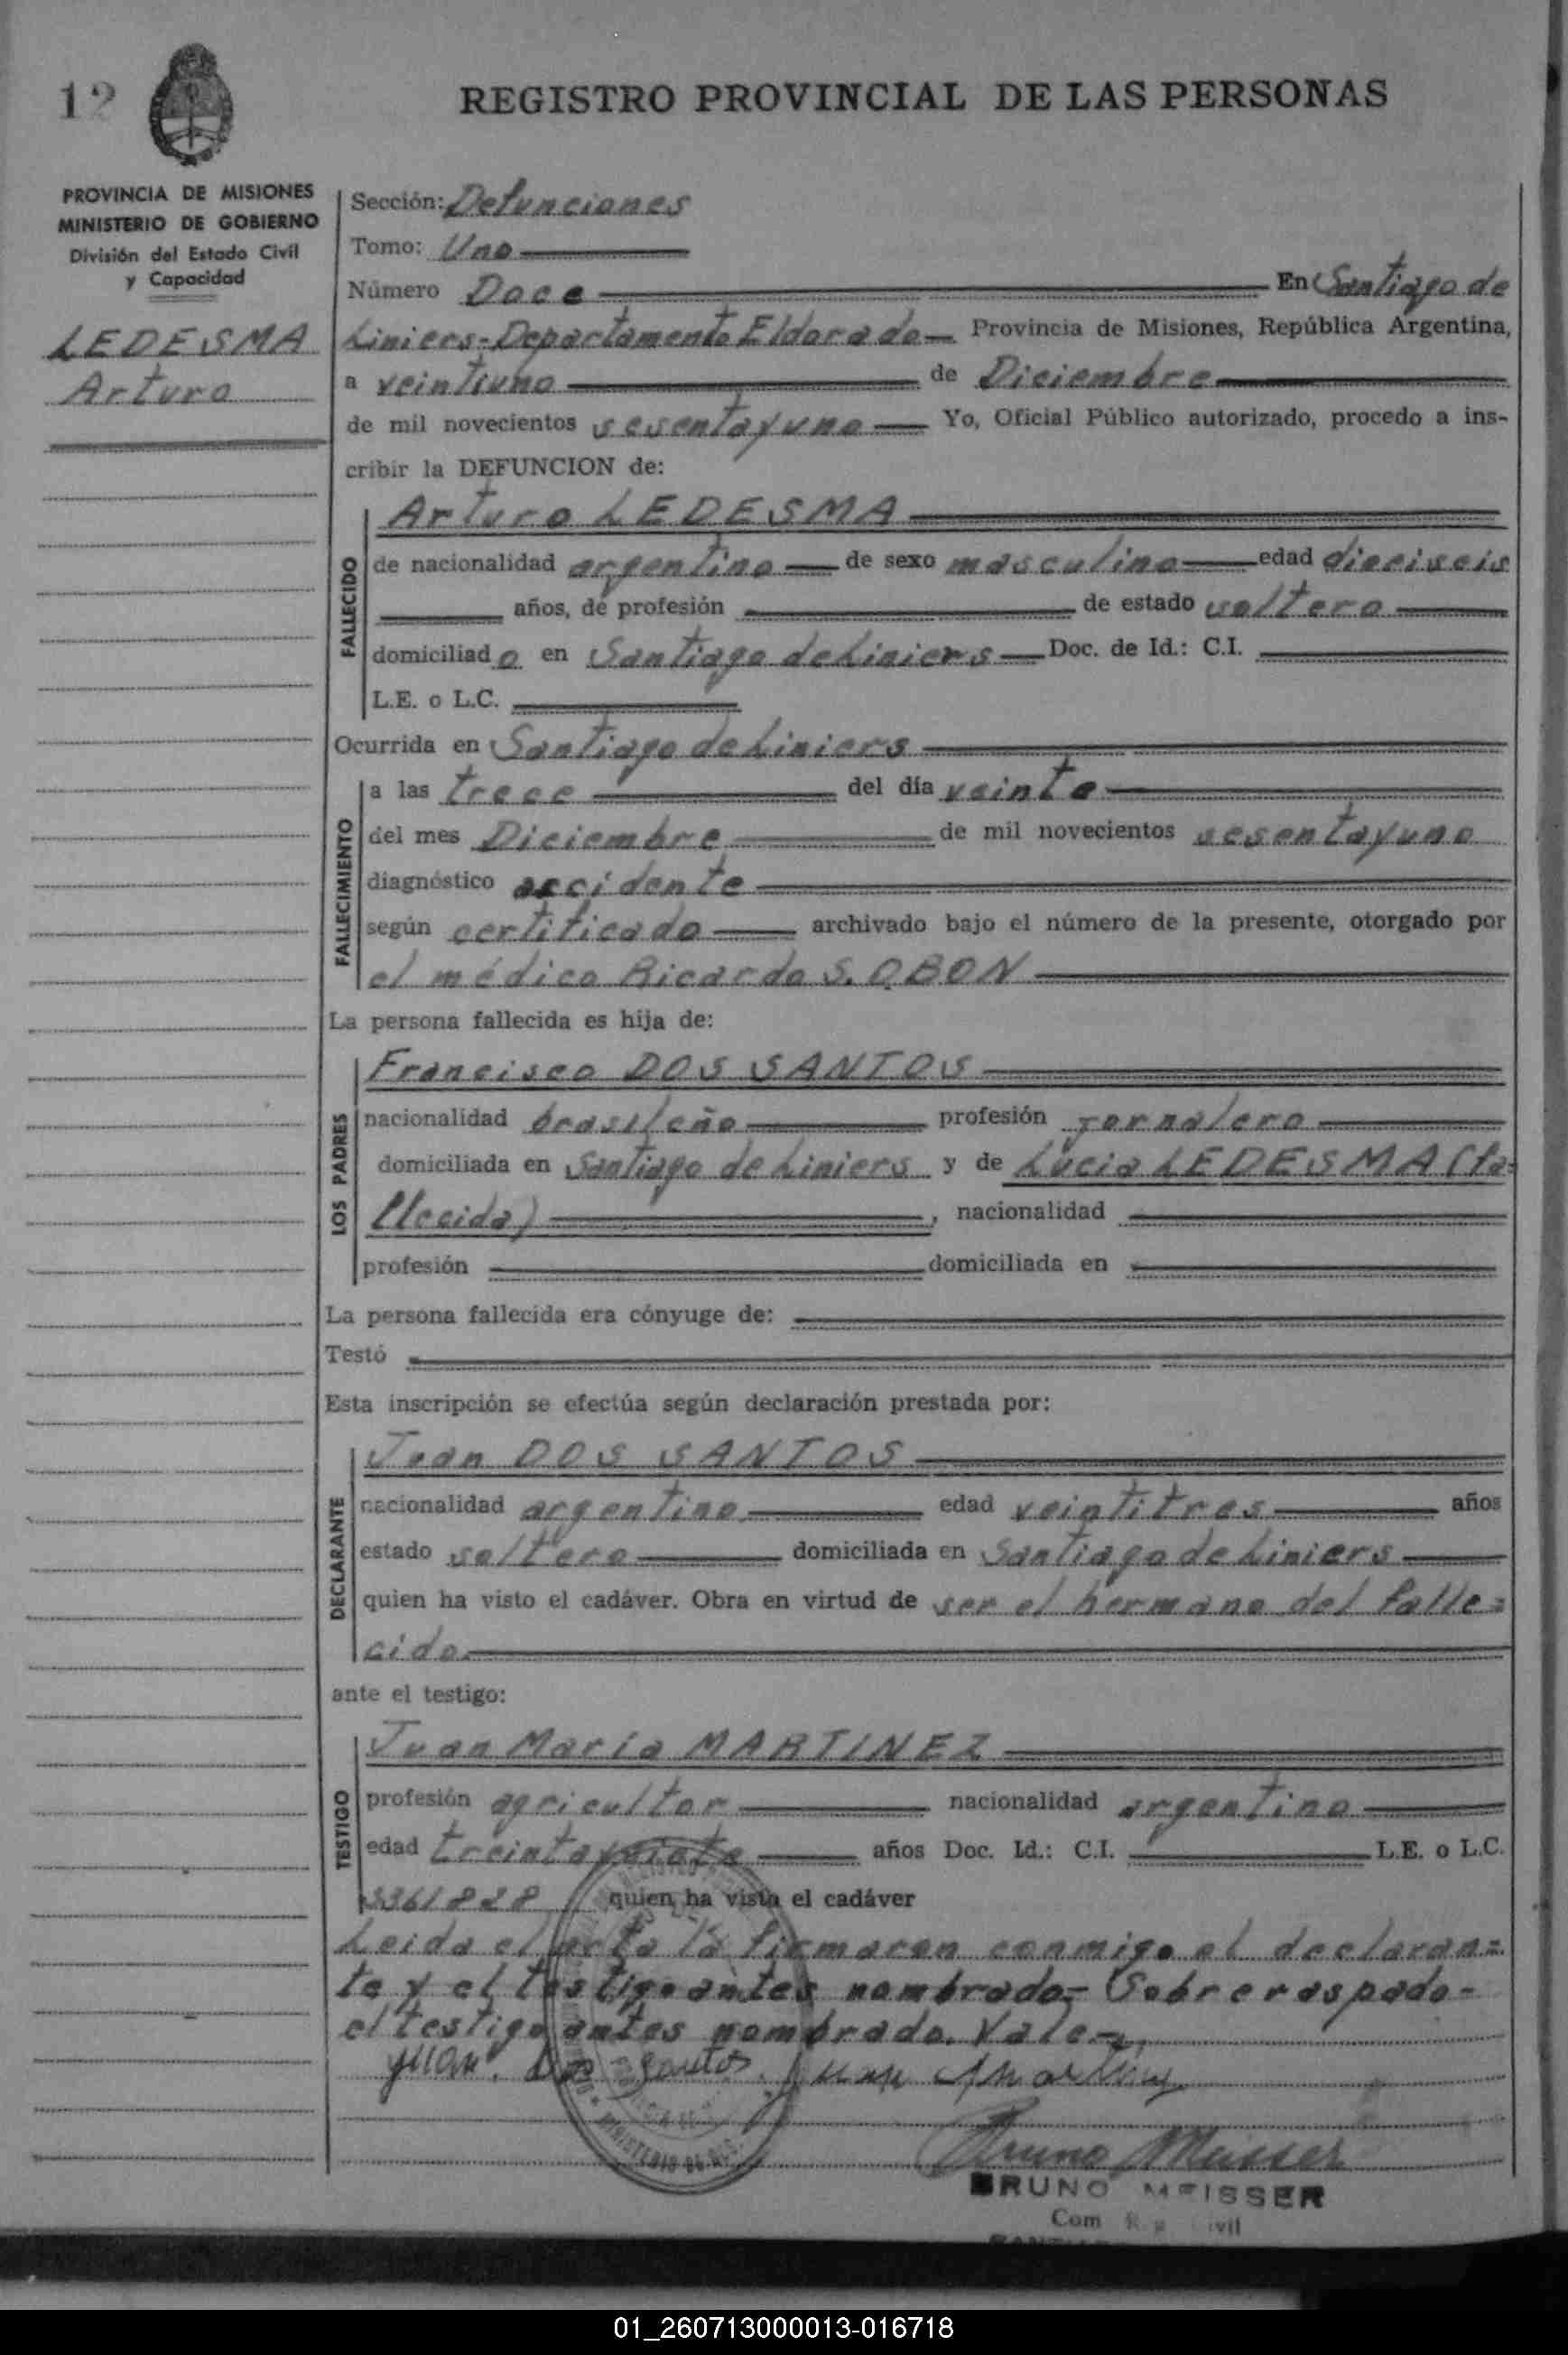 12
REGISTRO PROVINCIAL DE LAS PERSONAS
PROVINCIA DE MISIONES
MINISTERIO DE GOBIERNO
División del Estado Civil
y Capacidad
LEDESMA
Arturo
Sección: Defunciones
Tomo: Uno
Número Doce En Santiago de
Liniers-Departamento Eldorado Provincia de Misiones, República Argentina,
a veintiuno de Diciembre
de mil novecientos sesentayuno Yo, Oficial Público autorizado, procedo a ins-
cribir la DEFUNCION de:
FALLECIDO
Arturo LEDESMA
de nacionalidad argentina de sexo masculino edad dieciseis
años, de profesión de estado soltero
domiciliado en Santiago de Liniers Doc. de Id.: C.I.
L.E. o L.C.
Ocurrida en Santiago de Liniers
FALLECIMIENTO
a las trece del día veinte
del mes Diciembre de mil novecientos sesentayuno
diagnóstico accidente
según certificado archivado bajo el número de la presente, otorgado por
el médico Ricardo S. OBON
La persona fallecida es hija de:
LOS PADRES
Francisco DOS SANTOS
nacionalidad brasileño profesión jornalero
domiciliada en Santiago de Liniers y de Lucia LEDESMA (fa=
llecida) , nacionalidad
profesión domiciliada en
La persona fallecida era cónyuge de:
Testó
Esta inscripción se efectúa según declaración prestada por:
DECLARANTE
Juan DOS SANTOS
nacionalidad argentino edad veintitres años
estado soltero domiciliada en Santiago de Liniers
quien ha visto el cadáver. Obra en virtud de ser el hermano del falle=
cido.
ante el testigo:
TESTIGO
Juan María MARTINEZ
profesión agricultor nacionalidad argentino
edad treintaysiete años Doc. Id.: C.I. L.E. o L.C.
quien ha visto el cadáver
Leida el acta la firmaron conmigo el declaran=
te y el testigo antes nombrado- Sobreraspado-
el testigo antes nombrado. Vale-
Juan. Dos Santos. Juan M Martinez
Bruno Meisser
BRUNO MEISSER
01_260713000013-016718